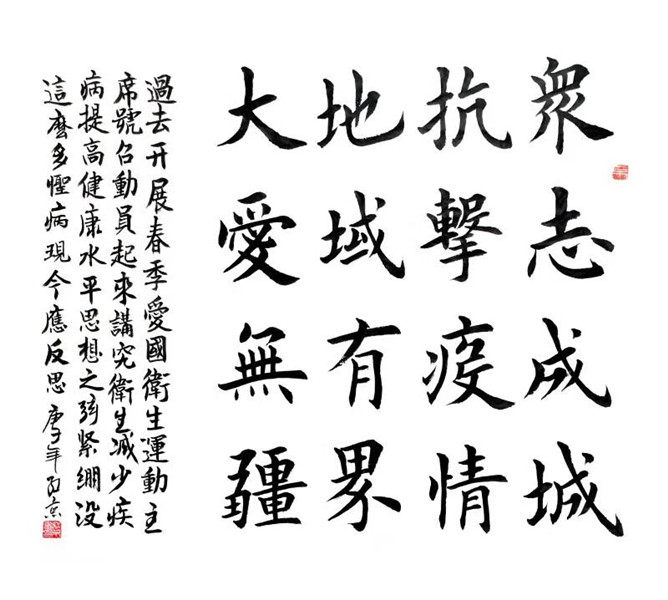 衆志成城
抗擊疫情
地域有界
大愛無疆
過去开展春季愛國衛生運動主
席號召動員起來講究衛生减少疾
病提高健康水平思想之弦緊绷没
這麼多怪病現今應反思庚子年京